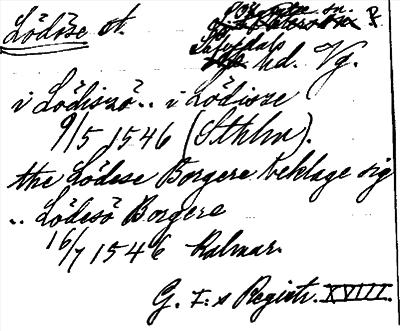 Lödöse st. sn. P.
Sävedals hd. Vg.
i Lödiszö .. i Lödisze
9/5 1546 (Sthlm).
the Lödese Borgere beklage sig
.. Lödesö Borgere
16/7 1546 Kalmar.
G. I:s Registr. XVIII.